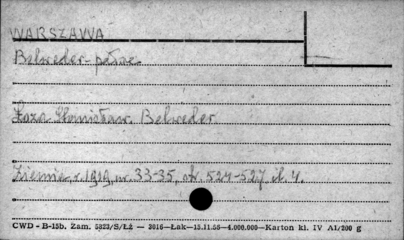 WARSZAWA
Belweder - pałac.
Łoza Stanisław. Belweder
Ziemia, r. 1919, nr. 33-35, str. 524-527, il. 4.
CWD - B-15b. Zam. 5823/S/Łż — 3016—Łak—15.11.55—4.000.000—Karton kl. IV A1/200 g